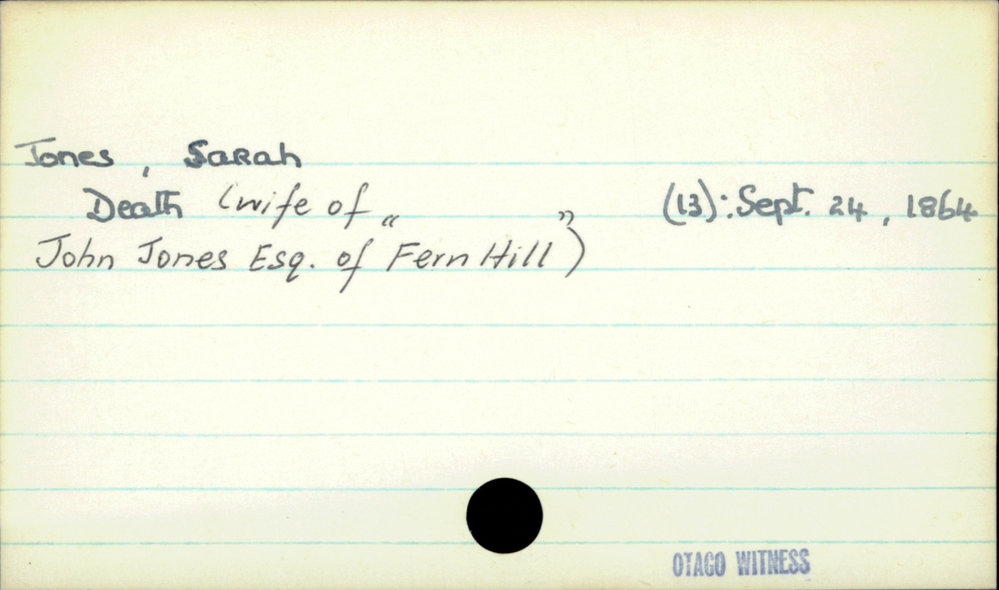 Jones, Sarah
Death (wife of (13): Sept. 24, 1864
John Jones Esq. of "Fern Hill")
OTAGO WITNESS